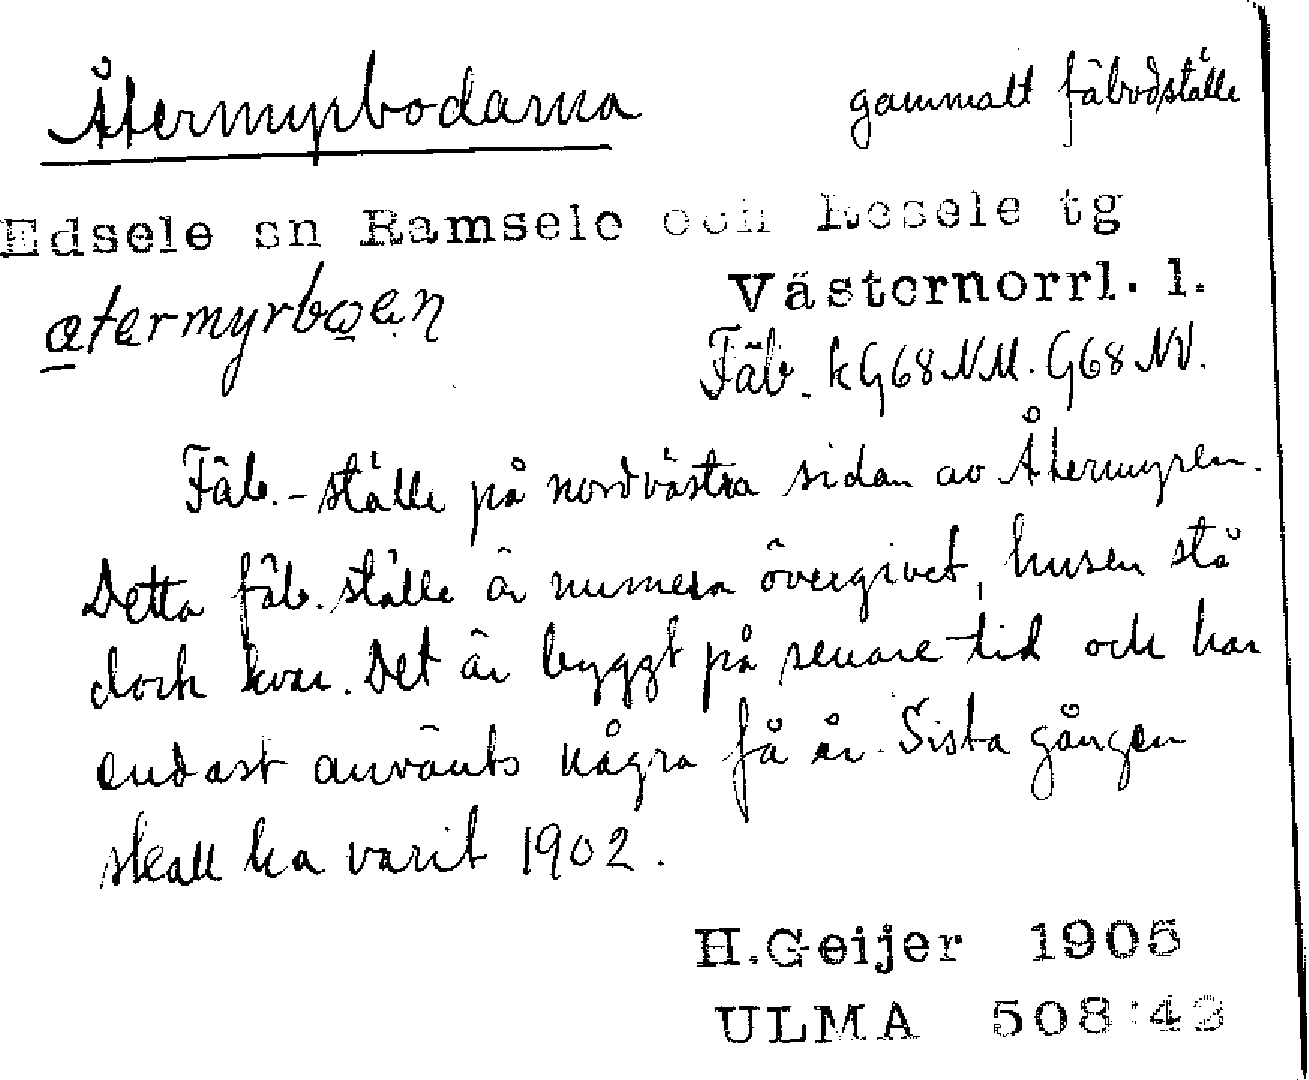 Återmyrbodarna
gammalt fäbodställe
Edsele sn Ramsele och Resele tg
Västernorrl. l.
atermyrbo̱en
Fäb. kG68NM. G68NV.
Fäb.-ställe på nordvästra sidan av Återmyren.
Detta fäb. ställe är numera övergivet, husen stå
dock kvar. Det är byggt på senare tid och har
endast använts några få år. Sista gången
skall ha varit 1902.
H.Geijer 1905
ULMA 508:43